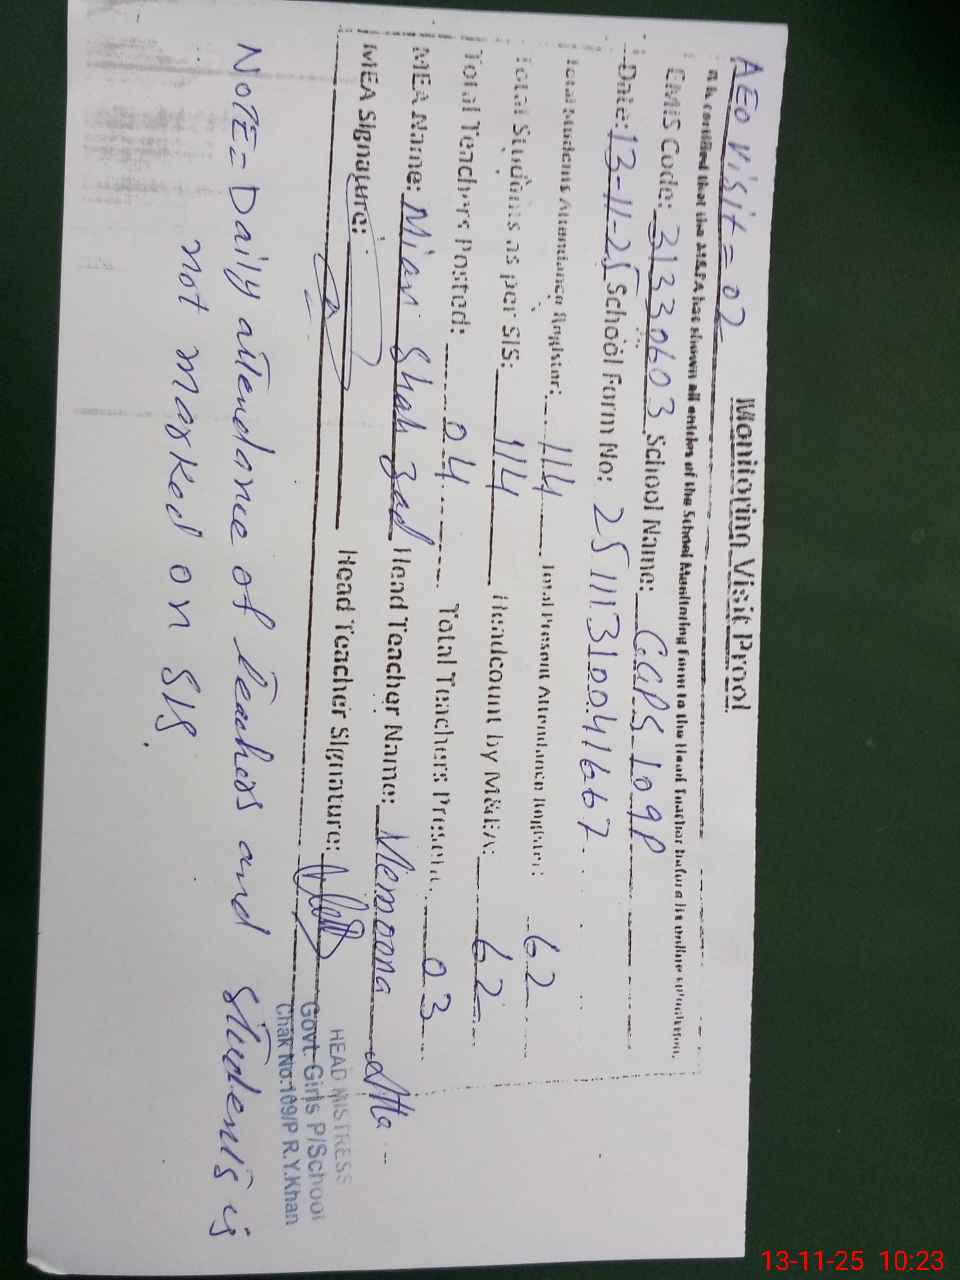 AEO Visit = 02
Monitoring Visit Proof
It is certified that the M&EA has shown all entries of the School Monitoring Form to the Head Teacher before its online submission.
EMIS Code: 31330603 School Name: GGPS 109P
Date: 13-11-25 School Form No: 2511131004166 7
Total Students Attendance Register: 114 Total Present Attendance Register: 62
Total Students as per SIS: 114 Headcount by M&EA: 62
Total Teachers Posted: 04 Total Teachers Present: 03
MEA Name: Mian Shah Zad Head Teacher Name: Memoona Atta
MEA Signature: Head Teacher Signature:
HEAD MISTRESS
Govt: Girls P/School
Chak No:109/P R.Y.Khan
NOTE= Daily attendance of teachers and students is
not marked on SIS.
13-11-25 10:23